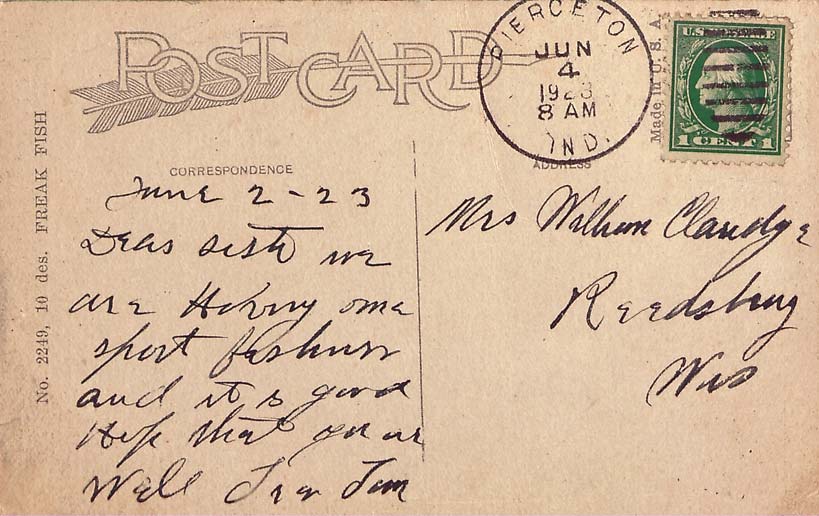 POST CARD
PIERCETON
JUN
4
1923
8 AM
IND.
U.S. POSTAGE
1 CENT 1
Made in U. S. A.
No. 2249, 10 des. FREAK FISH
CORRESPONDENCE
June 2-23
Dear sister we
are Having some
sport fishing
and it is good
Hope that you are
Well
ADDRESS
Mrs William Claridge
Reedsburg
Wis